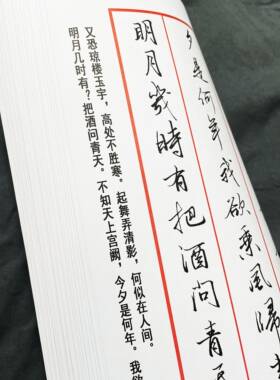 明月几时有？把酒问青天。不知天上宫阙，今夕是何年。我欲
又恐琼楼玉宇，高处不胜寒。起舞弄清影，何似在人间。
明月幾時有把酒問青
夕是何年我欲乘風歸